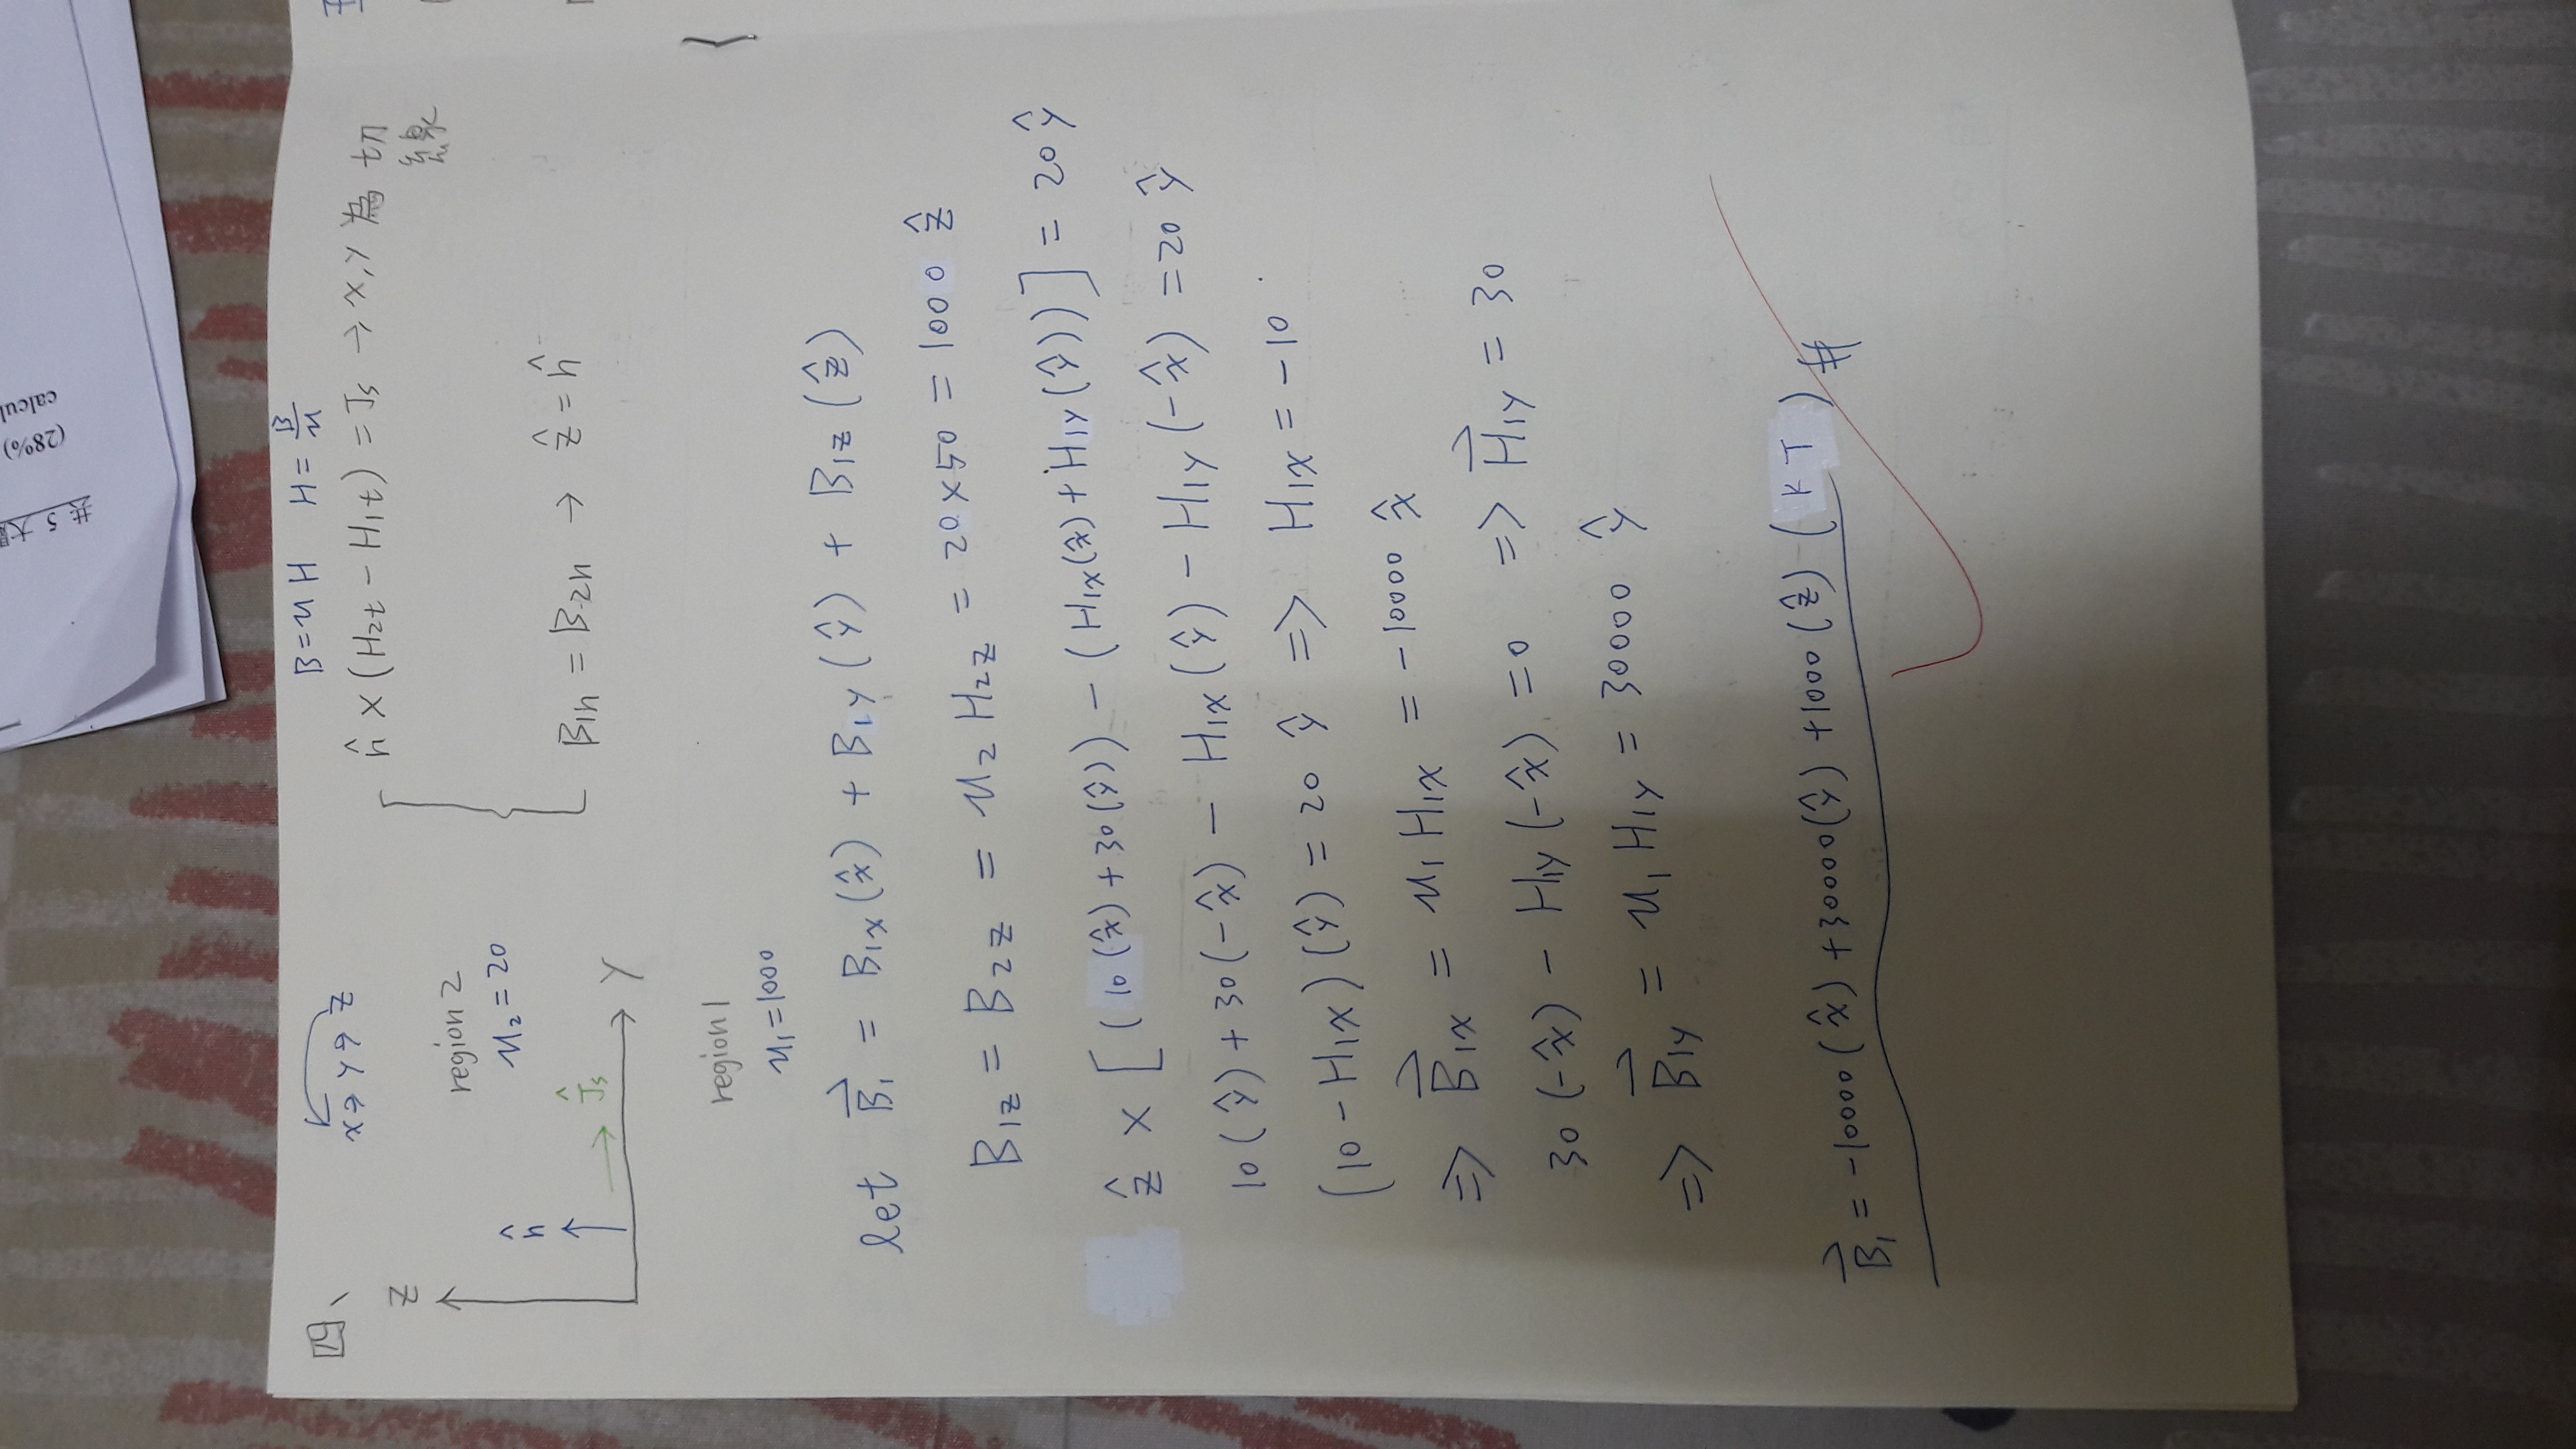 共 5 大
(28%)
calcul
四、
x → y → z
B = μ H   H = B/μ
n̂ × (H2t − H1t) = Js → x, y 為 切
線
Z
region 2
μ2 = 20
n̂
Ĵs
Y
B1n = B2n → ẑ = n̂
region 1
μ1 = 1000
let B⃗1 = B1x(x̂) + B1y(ŷ) + B1z(ẑ)
B1z = B2z = μ2 H2z = 20×50 = 1000 ẑ
ẑ × [(10(x̂) + 30(ŷ)) − (H1x(x̂) + H1y(ŷ))] = 20 ŷ
10(ŷ) + 30(−x̂) − H1x(ŷ) − H1y(−x̂) = 20 ŷ
(10 − H1x)(ŷ) = 20 ŷ => H1x = −10
=> B⃗1x = μ1 H1x = −10000 x̂
30(−x̂) − H1y(−x̂) = 0 => H⃗1y = 30
=> B⃗1y = μ1 H1y = 30000 ŷ
B⃗1 = −10000(x̂) + 30000(ŷ) + 1000(ẑ) (KT) #